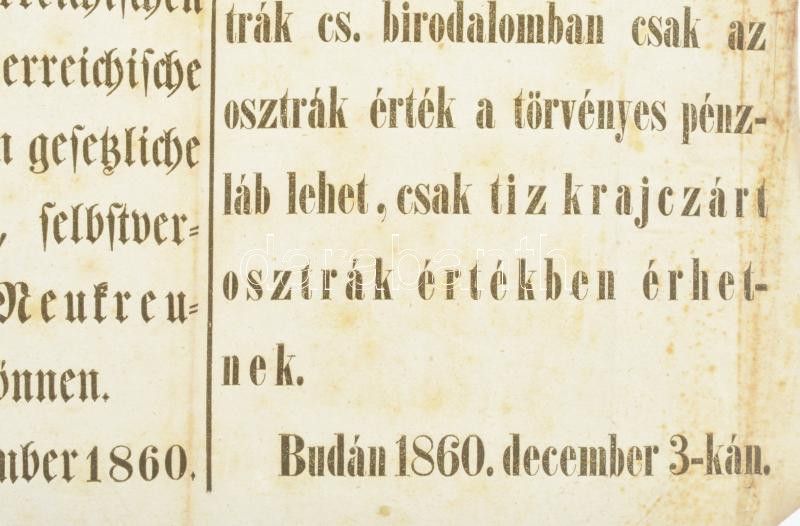 erreichische
gesetzliche
selbstver-
Neukreu-
önnen.
mber 1860.
trák cs. birodalomban csak az
osztrák érték a törvényes pénz-
láb lehet, csak tiz krajczárt
osztrák értékben érhet-
nek.
Budán 1860. december 3-kán.
darabanth.com